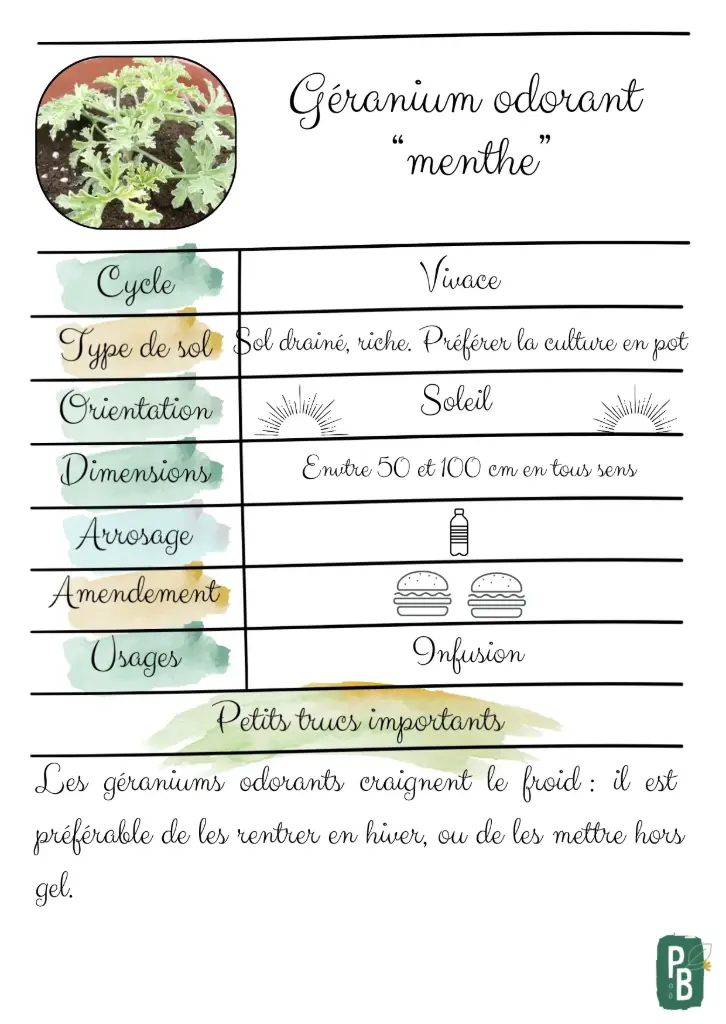 Géranium odorant
“menthe”
Cycle
Vivace
Type de sol
Sol drainé, riche. Préférer la culture en pot
Orientation
Soleil
Dimensions
Entre 50 et 100 cm en tous sens
Arrosage
Amendement
Usages
Infusion
Petits trucs importants
Les géraniums odorants craignent le froid : il est
préférable de les rentrer en hiver, ou de les mettre hors
gel.
P
B